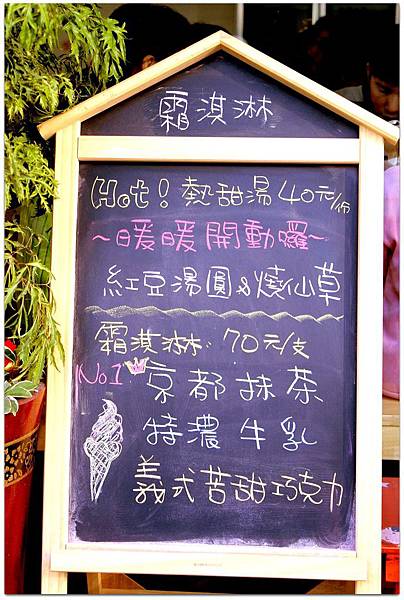 霜淇淋
Hot! 熱甜湯 40元/份
~暖暖開動囉~
紅豆湯圓&燒仙草
霜淇淋. 70元/支
No1 京都抹茶
特濃牛乳
義式苦甜巧克力